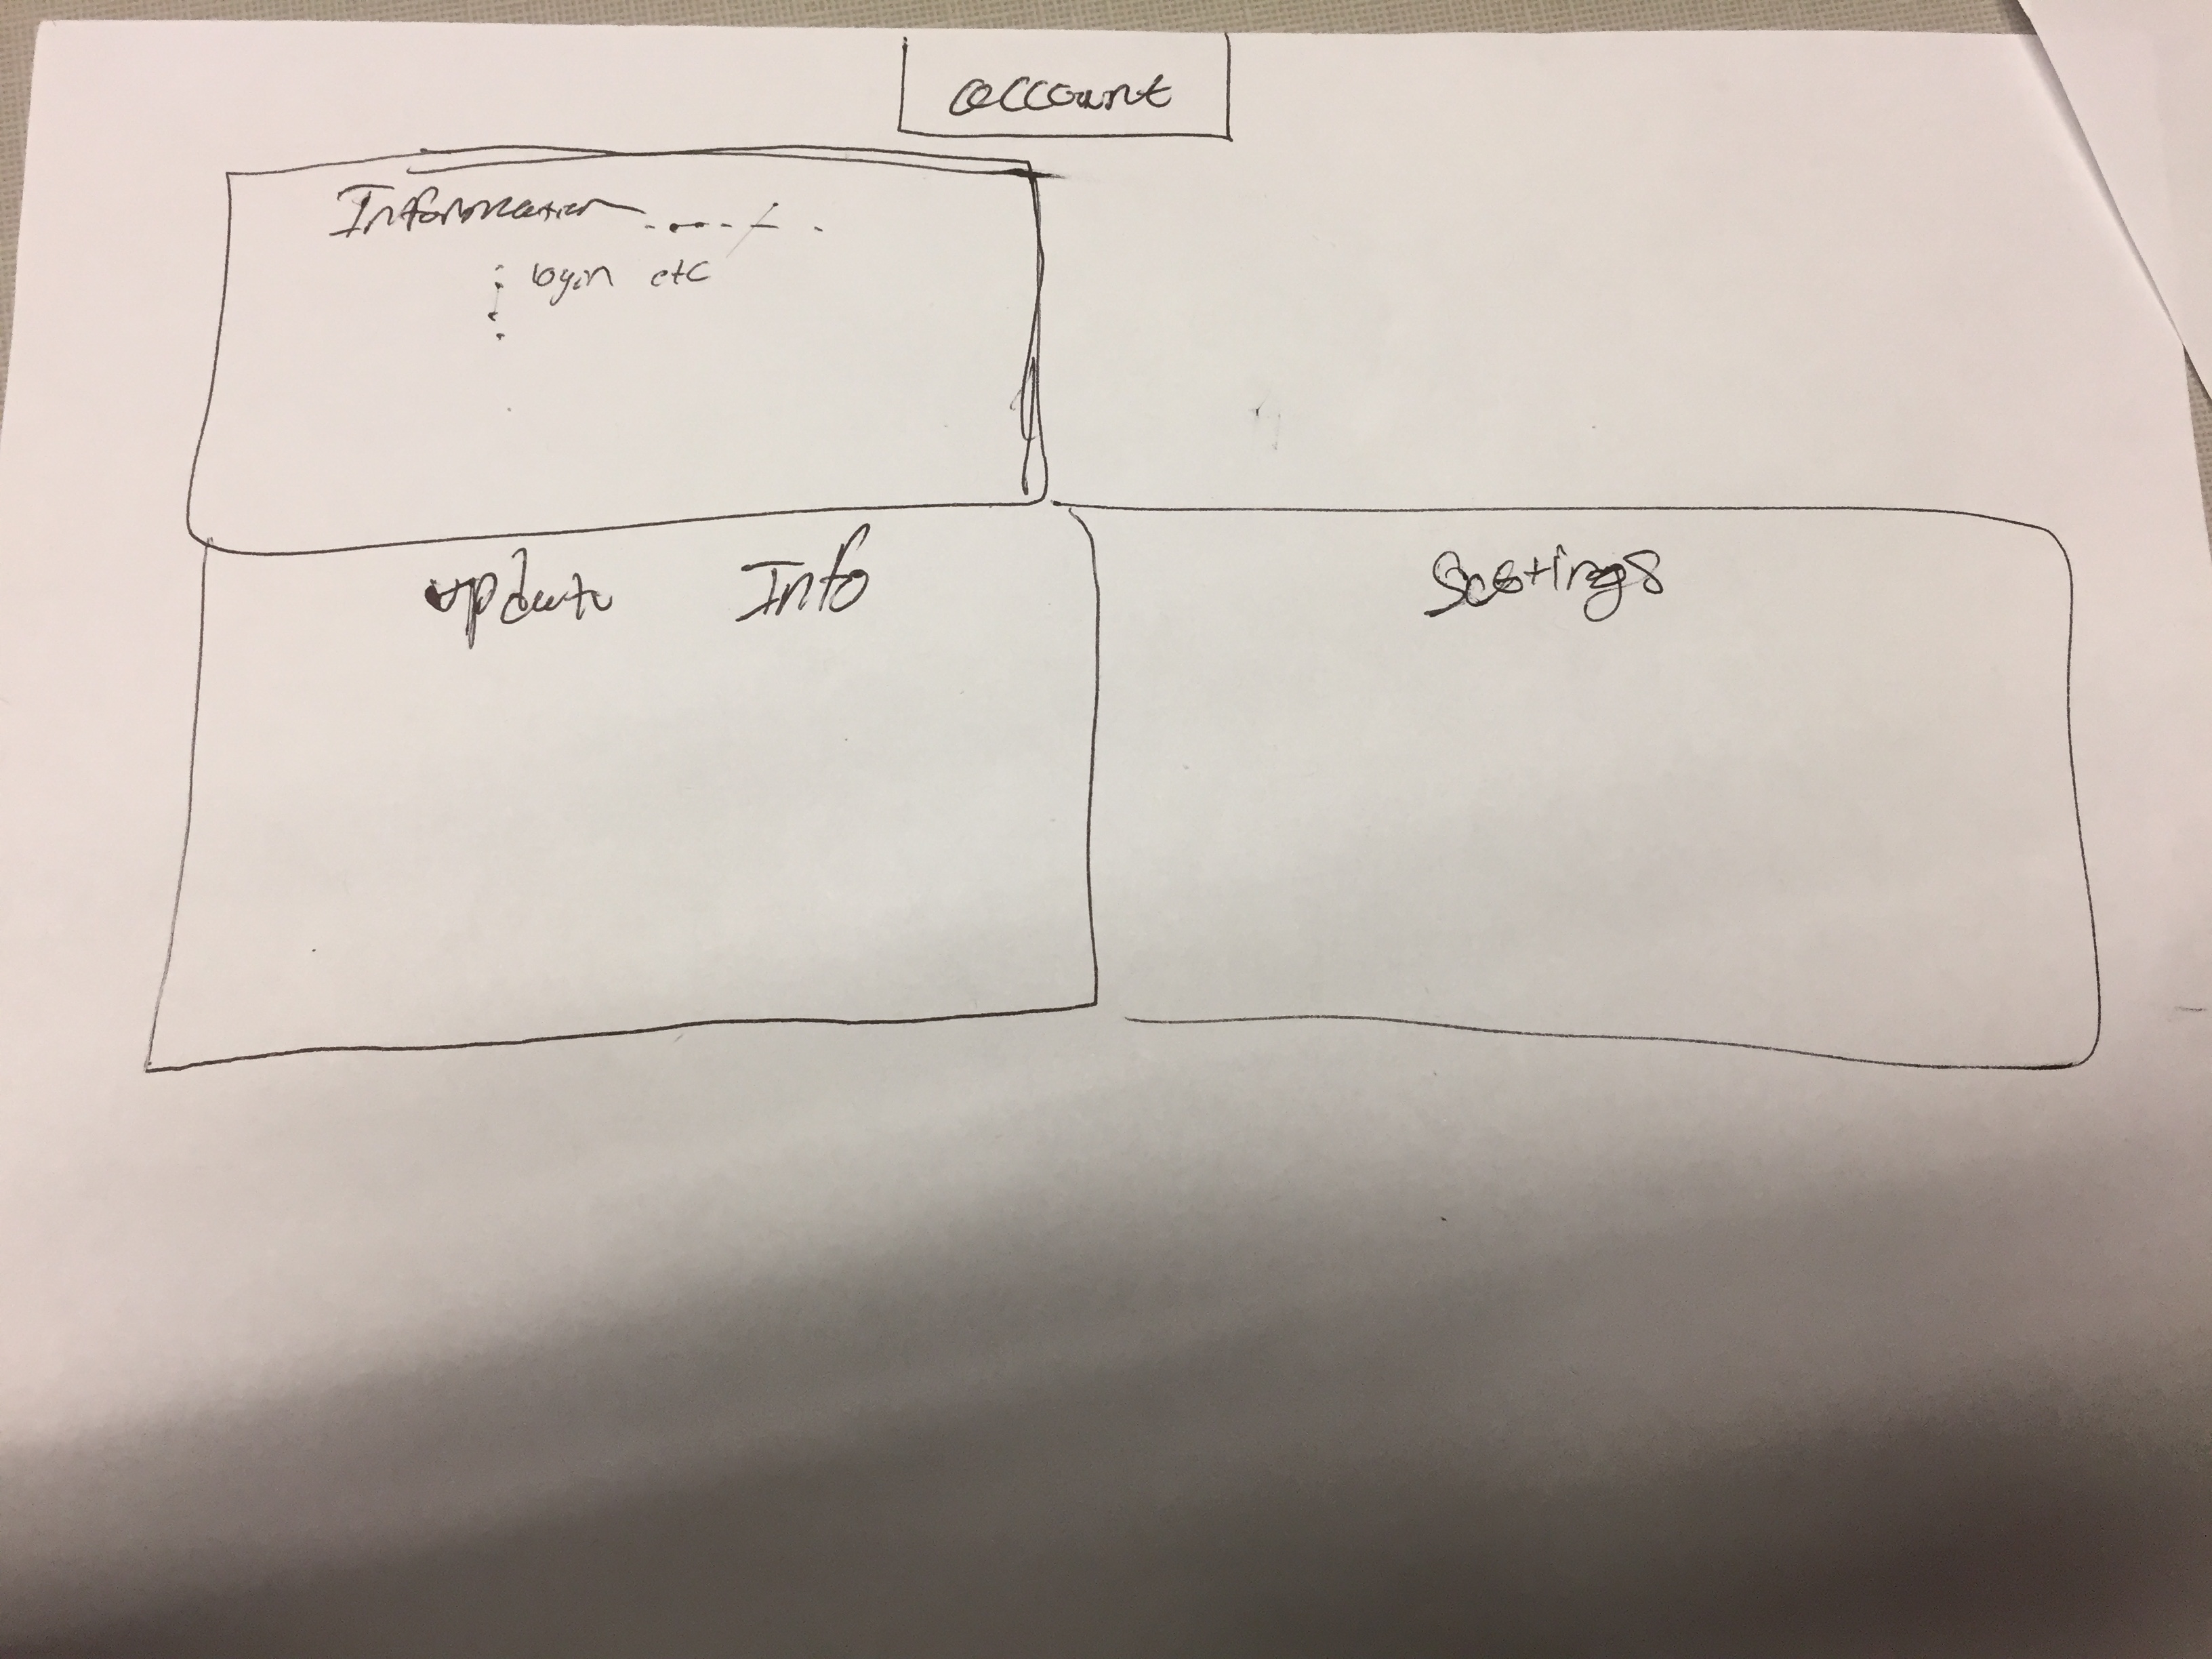 account
Information
login etc
update Info
Settings